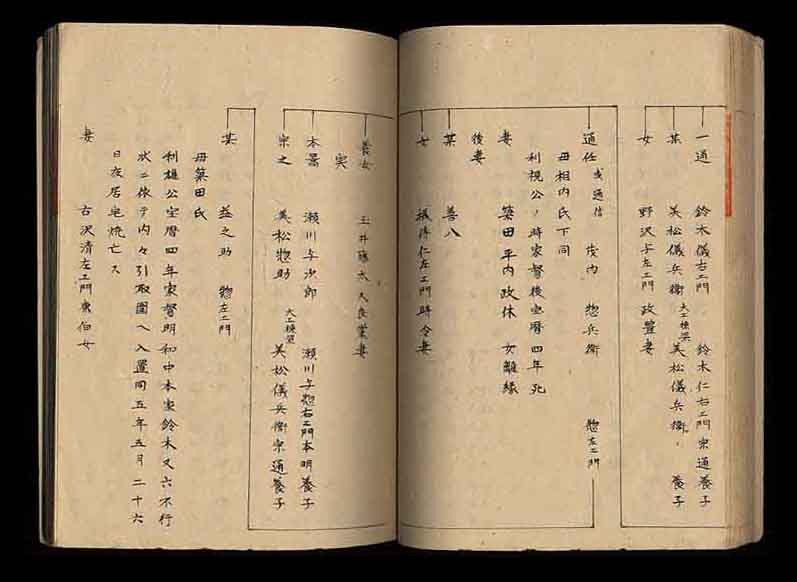 一通 鈴木儀右エ門 鈴木仁右エ門宗通養子
某 美松儀兵衛 大工棟梁 美松儀兵衛、養子
女 野沢与左エ門政豊妻
通任 或通信 茂内 惣兵衛 惣左エ門
母相内氏下同
利視公ノ時家督後宝暦四年死
妻 築田平内政休女離縁
後妻
某 善八
女 仁左エ門時令妻
養女 玉井藤太久良業妻
実
本景 瀬川与次郎 瀬川与惣右エ門本明養子
宗之 美松惣助 大工棟梁 美松儀兵衛宗通養子
某 益之助 惣左エ門
母築田氏
利雄公宝暦四年家督明和中本家鈴木又六不行
状ニ依テ内々引取圍ヘ入置同五年五月二十六
日夜居宅焼亡ス
妻 古沢清左エ門康伯女